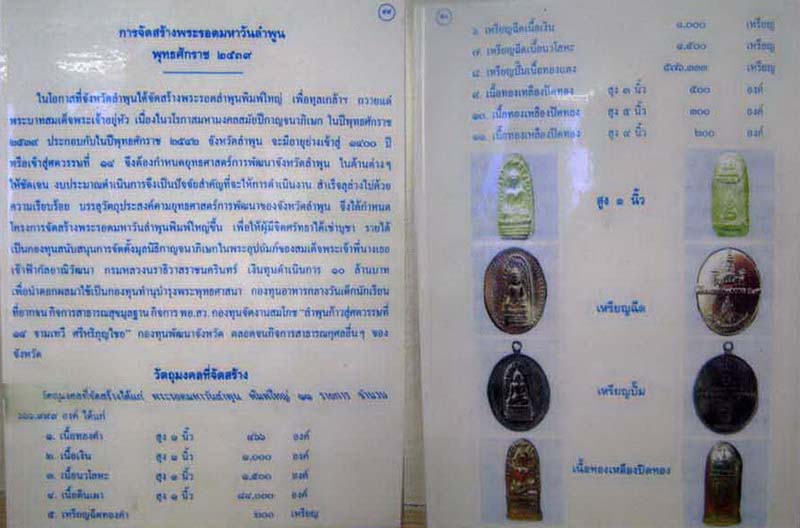 ๑๙
การจัดสร้างพระรอดมหาวันลำพูน
พุทธศักราช ๒๕๓๙
ในโอกาสที่จังหวัดลำพูนได้จัดสร้างพระรอดลำพูนพิมพ์ใหญ่ เพื่อทูลเกล้าฯ ถวายแด่
พระบาทสมเด็จพระเจ้าอยู่หัว เนื่องในวโรกาสมหามงคลสมัยปีกาญจนาภิเษก ในปีพุทธศักราช
๒๕๓๙ ประกอบกับในปีพุทธศักราช ๒๕๔๒ จังหวัดลำพูน จะมีอายุย่างเข้าสู่ ๑๔๐๐ ปี
หรือเข้าสู่ศตวรรษที่ ๑๔ จึงต้องกำหนดยุทธศาสตร์การพัฒนาจังหวัดลำพูน ในด้านต่างๆ
ให้ชัดเจน งบประมาณดำเนินการจึงเป็นปัจจัยสำคัญที่จะให้การดำเนินงาน สำเร็จลุล่วงไปด้วย
ความเรียบร้อย บรรลุวัตถุประสงค์ตามยุทธศาสตร์การพัฒนาของจังหวัดลำพูน จึงได้กำหนด
โครงการจัดสร้างพระรอดมหาวันลำพูนพิมพ์ใหญ่ขึ้น เพื่อให้ผู้มีจิตศรัทธาได้เช่าบูชา รายได้
เป็นกองทุนสนับสนุนการจัดตั้งมูลนิธิกาญจนาภิเษกในพระอุปถัมภ์ของสมเด็จพระเจ้าพี่นางเธอ
เจ้าฟ้ากัลยาณิวัฒนา กรมหลวงนราธิวาสราชนครินทร์ เงินทุนดำเนินการ ๑๐ ล้านบาท
เพื่อนำดอกผลมาใช้เป็นกองทุนทำนุบำรุงพระพุทธศาสนา กองทุนอาหารกลางวันเด็กนักเรียน
ที่ยากจน กิจการสาธารณสุขมูลฐาน กิจการ พอ.สว. กองทุนจัดงานสมโภช "ลำพูนก้าวสู่ศตวรรษที่
๑๔ จามเทวี ศรีหริภุญไชย" กองทุนพัฒนาจังหวัด ตลอดจนกิจการสาธารณกุศลอื่นๆ ของ
จังหวัด
วัตถุมงคลที่จัดสร้าง
วัตถุมงคลที่จัดสร้างได้แก่ พระรอดมหาวันลำพูน พิมพ์ใหญ่ ๑๑ รายการ จำนวน
องค์ ได้แก่
๑. เนื้อทองคำ สูง ๑ นิ้ว ๔๖๖ องค์
๒. เนื้อเงิน สูง ๑ นิ้ว ๑,๐๐๐ องค์
๓. เนื้อนวโลหะ สูง ๑ นิ้ว ๑,๕๐๐ องค์
๔. เนื้อดินเผา สูง ๑ นิ้ว ๘๔,๐๐๐ องค์
๕. เหรียญฉีดทองคำ ๒๐๐ เหรียญ
๖. เหรียญฉีดเนื้อเงิน ๑,๐๐๐ เหรียญ
๗. เหรียญฉีดเนื้อนวโลหะ ๑,๕๐๐ เหรียญ
๘. เหรียญปั๊มเนื้อทองแดง เหรียญ
๙. เนื้อทองเหลืองปิดทอง สูง ๓ นิ้ว ๕๐๐ องค์
๑๐. เนื้อทองเหลืองปิดทอง สูง ๕ นิ้ว ๓๐๐ องค์
๑๑. เนื้อทองเหลืองปิดทอง สูง ๙ นิ้ว ๒๐๐ องค์
สูง ๑ นิ้ว
เหรียญฉีด
เหรียญปั๊ม
เนื้อทองเหลืองปิดทอง